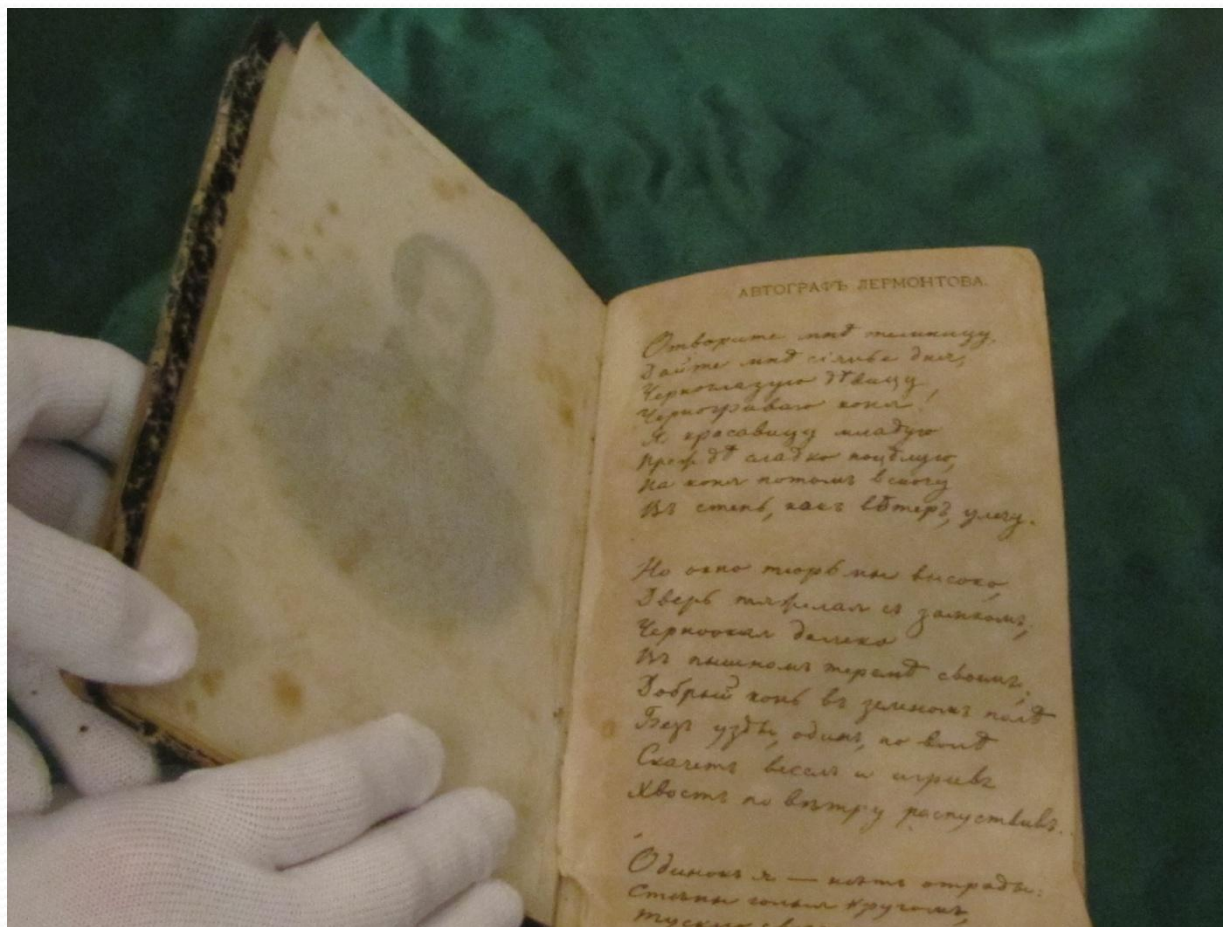 АВТОГРАФЪ ЛЕРМОНТОВА.
Отворите мнѣ темницу,
Дайте мнѣ сіянье дня,
Черноглазую дѣвицу
Черногриваго коня!
Я красавицу младую
Прежде сладко поцѣлую,
На коня потомъ вскочу
Въ степь, какъ вѣтеръ, улечу.
Но окно тюрьмы высоко,
Дверь тяжелая съ замкомъ;
Черноокая далеко
Въ пышномъ теремѣ своемъ;
Добрый конь въ зеленомъ полѣ
Безъ узды, одинъ, по волѣ
Скачетъ веселъ и игривъ
Хвостъ по вѣтру распустивъ..
Одинокъ я — нѣтъ отрады:
Стѣны голыя кругомъ,